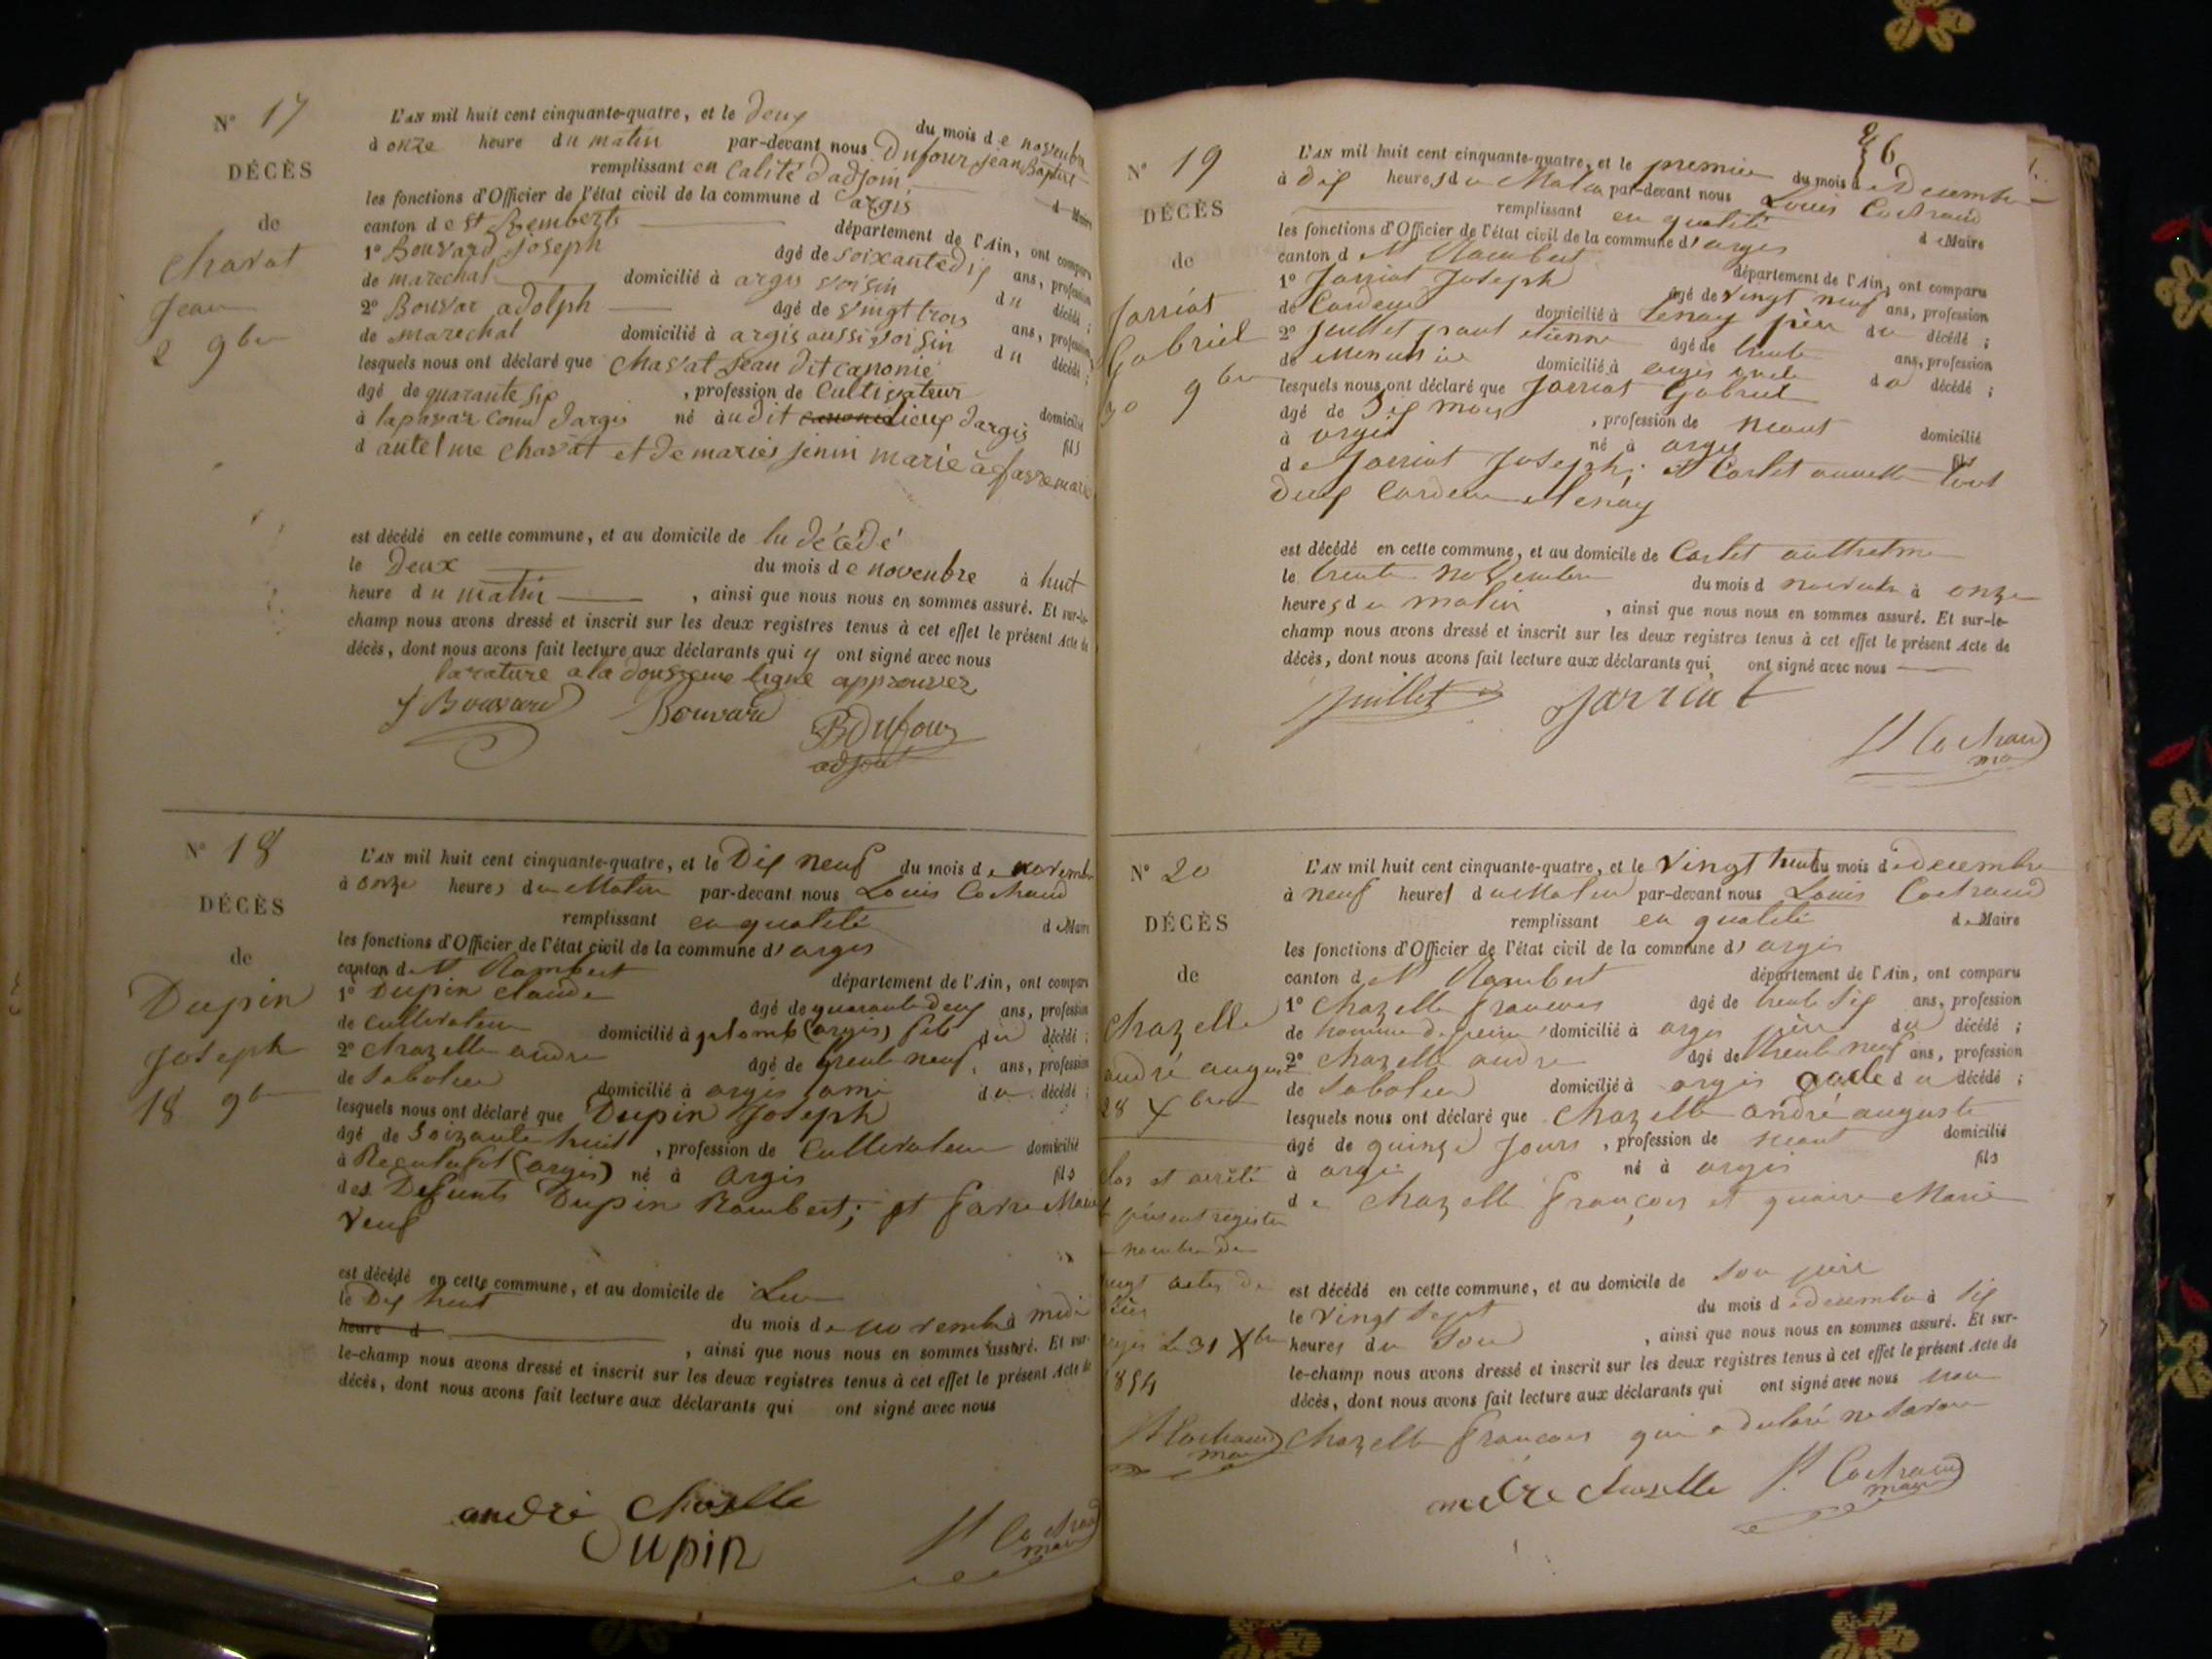 N° 17
DÉCÈS
de
Chavat
Jean
2 9bre
L'AN mil huit cent cinquante-quatre, et le deux du mois de novenbre
à onze heure du matin par-devant nous Dufour jean Baptiste
remplissant en Calité dadjoin d Maire
les fonctions d'Officier de l'état civil de la commune d argis
canton de St Remberts département de l'Ain, ont comparu
1° Bouvard joseph âgé de soixantedix ans, profession
de marechal domicilié à argis voisin du décédé ;
2° Bouvar adolph âgé de vingt trois ans, profession
de marechal domicilié à argis aussi voisin du décédé ;
lesquels nous ont déclaré que Chavat Jean dit canonié
âgé de quarante six , profession de Cultivateur domicilié
à lapavaz comu dargis né àudit lieux dargis fils
d antelme chavat et de maries jenin marie à
est décédé en cette commune, et au domicile de lu décédé
le Deux du mois de novenbre à huit
heure du matin , ainsi que nous nous en sommes assuré. Et sur-le-
champ nous avons dressé et inscrit sur les deux registres tenus à cet effet le présent Acte de
décès, dont nous avons fait lecture aux déclarants qui y ont signé avec nous
larature a la douzieme ligne approuvez
J Bouvard Bouvard BDufour
adjoint
N° 18
DÉCÈS
de
Dupin
Joseph
18 9bre
L'AN mil huit cent cinquante-quatre, et le Dix neuf du mois de novembre
à onze heures du Matin par-devant nous Louis Cochaud
remplissant en qualité de Maire
les fonctions d'Officier de l'état civil de la commune d'argis
canton de St Rambert département de l'Ain, ont comparu
1° Dupin claude âgé de quarante deux ans, profession
de cultivateur domicilié à (argis) fils du décédé ;
2° Chazelle andre âgé de trente neuf, ans, profession
de Sabotier domicilié à argis ami du décédé ;
lesquels nous ont déclaré que Dupin Joseph
âgé de Soixante huit , profession de Cultivateur domicilié
à (argis) né à Argis fils
des Defunts Dupin Rambert; et favre Marie
Veuf
est décédé en cette commune, et au domicile de Lui
le Dix huit du mois de novembre à midi
heure d , ainsi que nous nous en sommes assuré. Et sur-
le-champ nous avons dressé et inscrit sur les deux registres tenus à cet effet le présent Acte de
décès, dont nous avons fait lecture aux déclarants qui ont signé avec nous
andré Chazelle
Dupin
maire
26
N° 19
DÉCÈS
de
Jarriat
Gabriel
30 9bre
L'AN mil huit cent cinquante-quatre, et le premier du mois de Decembre
à dix heures du Matin par-devant nous Louis Cochaud
remplissant en qualité de Maire
les fonctions d'Officier de l'état civil de la commune d'argis
canton d St Rambert département de l'Ain, ont comparu
1° Jarriat Joseph âgé de vingt neuf ans, profession
de Cardeur domicilié à tenay père du décédé ;
2° Juillet paul etienne âgé de trente ans, profession
de Menuisier domicilié à argis oncle du décédé ;
lesquels nous ont déclaré que Jarriat Gabriel
âgé de Six mois , profession de neant domicilié
à argis né à argis fils
de Jarriat Joseph; et Carlet tout
deux Cardeur a tenay
est décédé en cette commune, et au domicile de Carlet
le trente Novembre du mois d novembre à onze
heures du matin , ainsi que nous nous en sommes assuré. Et sur-le-
champ nous avons dressé et inscrit sur les deux registres tenus à cet effet le présent Acte de
décès, dont nous avons fait lecture aux déclarants qui ont signé avec nous
Juillet Jarriat
N° 20
DÉCÈS
de
Chazelle
andré auguste
28 Xbre
Clos et arrêté
présent registre
nombre de
vingt actes de
décès
argis Le 31 Xbre
1854
L'AN mil huit cent cinquante-quatre, et le Vingt huit du mois de decembre
à neuf heures du Matin par-devant nous Louis Cochaud
remplissant en qualité de Maire
les fonctions d'Officier de l'état civil de la commune d'argis
canton d St Rambert département de l'Ain, ont comparu
1° Chazelle francois âgé de trente Six ans, profession
de homme de peine domicilié à argis père du décédé ;
2° Chazelle andre âgé de trente neuf ans, profession
de Sabotier domicilié à argis oncle du décédé ;
lesquels nous ont déclaré que Chazelle andré auguste
âgé de quinze Jours , profession de neant domicilié
à argis né à argis fils
de Chazelle françois et Marie
est décédé en cette commune, et au domicile de Son père
le Vingt Sept du mois de decembre à Six
heures du Soir , ainsi que nous nous en sommes assuré. Et sur-
le-champ nous avons dressé et inscrit sur les deux registres tenus à cet effet le présent Acte de
décès, dont nous avons fait lecture aux déclarants qui ont signé avec nous non
Chazelle francois qui a déclaré ne Savoir
andre Chazelle
maire